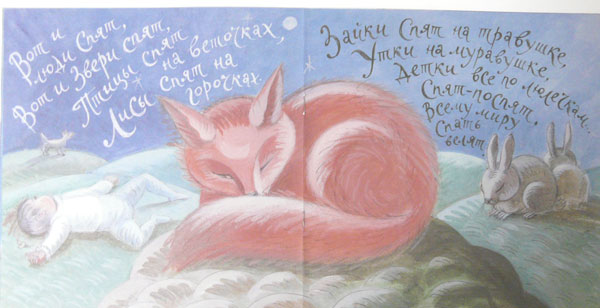 Вот и
люди спят,
Вот и Звери спят,
Птицы спят
на веточках,
Лисы спят на
горочках.
Зайки Спят на травушке,
Утки на муравушке,
Детки все по люлечкам.
Спят-поспят,
Всему миру
Спать
велят.